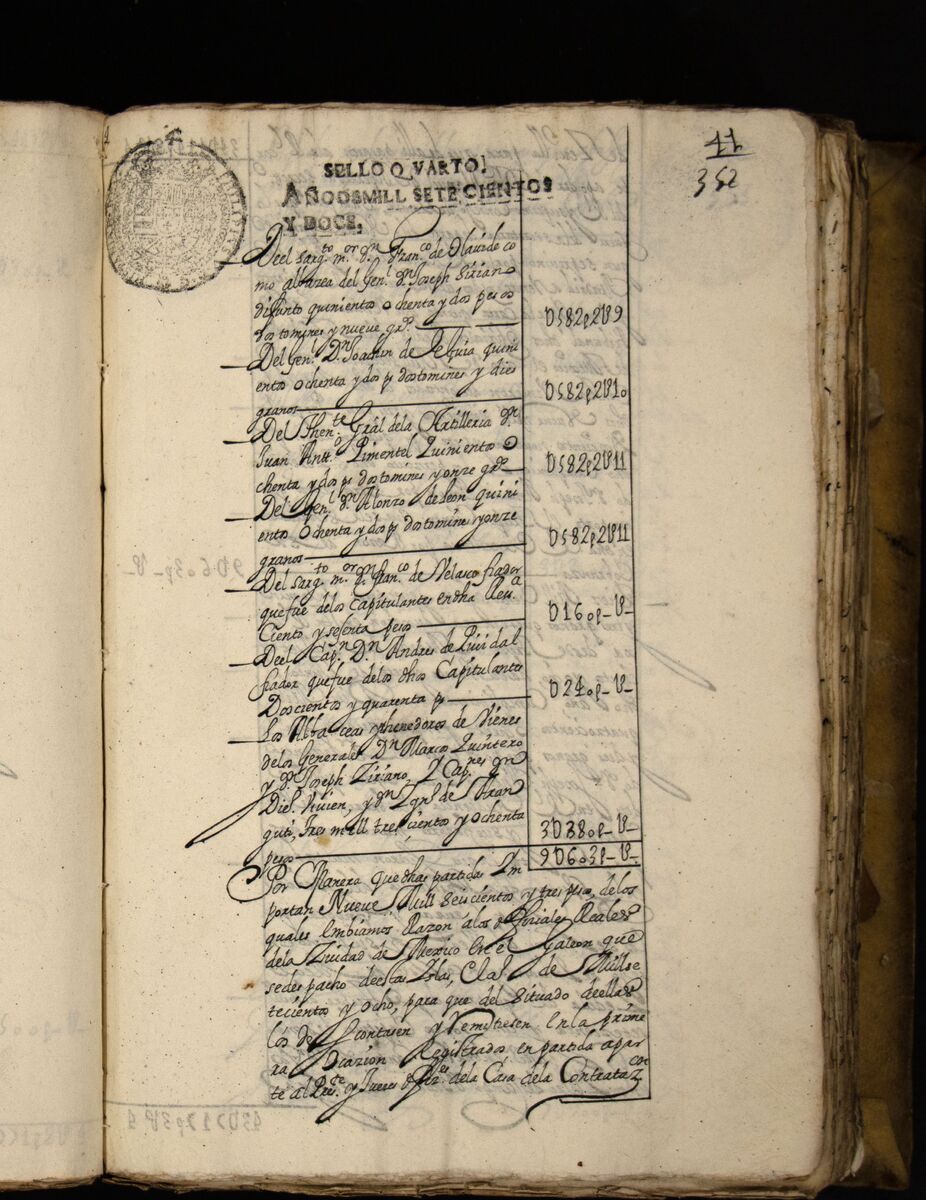 44
352
SELLO QVARTO,
AÑO DE MILL SETECIENTOS
Y DOCE,
Deel sarg.to m.or d.n Fran.co de Olauide co
mo albazea del Gen.l d.n Joseph Siriano
difunto quinientos ochenta y dos pesos
dos tomines y nueve gr.s D582p2U9
Del Gen.l D.n Joachin de quini
entos ochenta y dos ps dos tomines y dies
granos D582p2U10
Del Then.te Gral dela Artilleria d.n
Juan Antt.o Pimentel Quinientos o
chenta y dos ps dos tomines y onze gr.s D582p2U11
Del Gen.l d.n Alonzo de Leon quini
entos ochenta y dos ps dos tomines y onze
granos D582p2U11
Del sarg.to m.or d.n Fran.co de Velasco fiador
que fue delos Capitulantes en dha
Ciento y sesenta pesos D160p_U_
Deel Cap.n D.n Andres de
fiador que fue delos dhos Capitulantes
Doscientos y quarenta ps D240p_U_
Los Albaceas y thenedores de vienes
delos Generales D.n Marcos Quintero
y d.n Joseph Ziriano, Y Cap.nes d.n
Die.o Vivien, y d.n Ygn.o de Aran
guti, tres mill trescientos y ochenta
pesos 3D380p_U_
9D603p_U_
Por Manera que dhas partidas Ym
portan Nueve Mill seiscientos y tres pesos, delos
quales embiamos Razon alos ofiziales Reales
dela Ziudad de Mexico en el Galeon que
se despacho de estas Yslas, el a.o de Mill se
tecientos y ocho, para que del situado de ellas
los descontasen y Remitiesen en la prime
ra ocazion Registrados en partida apar
te al Pres.te y Jueces ofiz.es dela Casa dela Contrataz.on